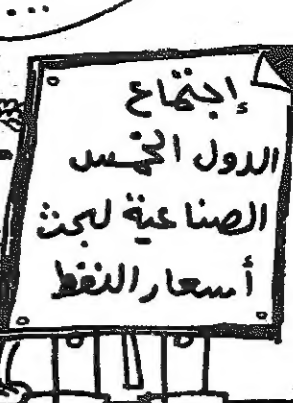 ...
إجتماع
الدول الخمس
الصناعية لبحث
أسعار النفط